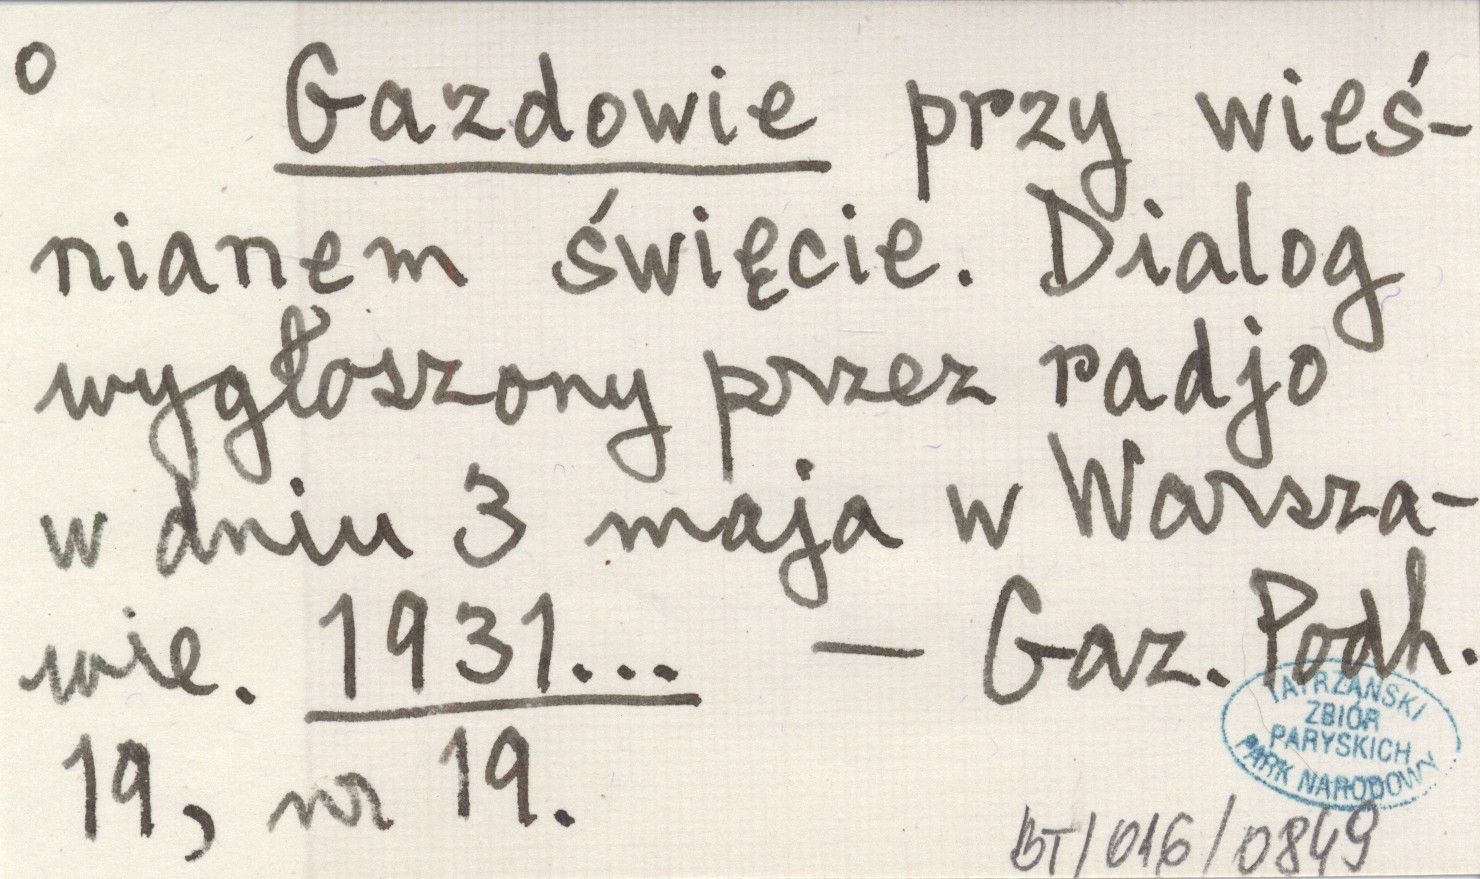 o Gazdowie przy wieś-
nianem święcie. Dialog
wygłoszony przez radjo
w dniu 3 maja w Warsza-
wie. 1931... — Gaz. Podh.
19, nr 19.
TATRZAŃSKI
ZBIÓR
PARYSKICH
PARK NARODOWY
BT/016/0849